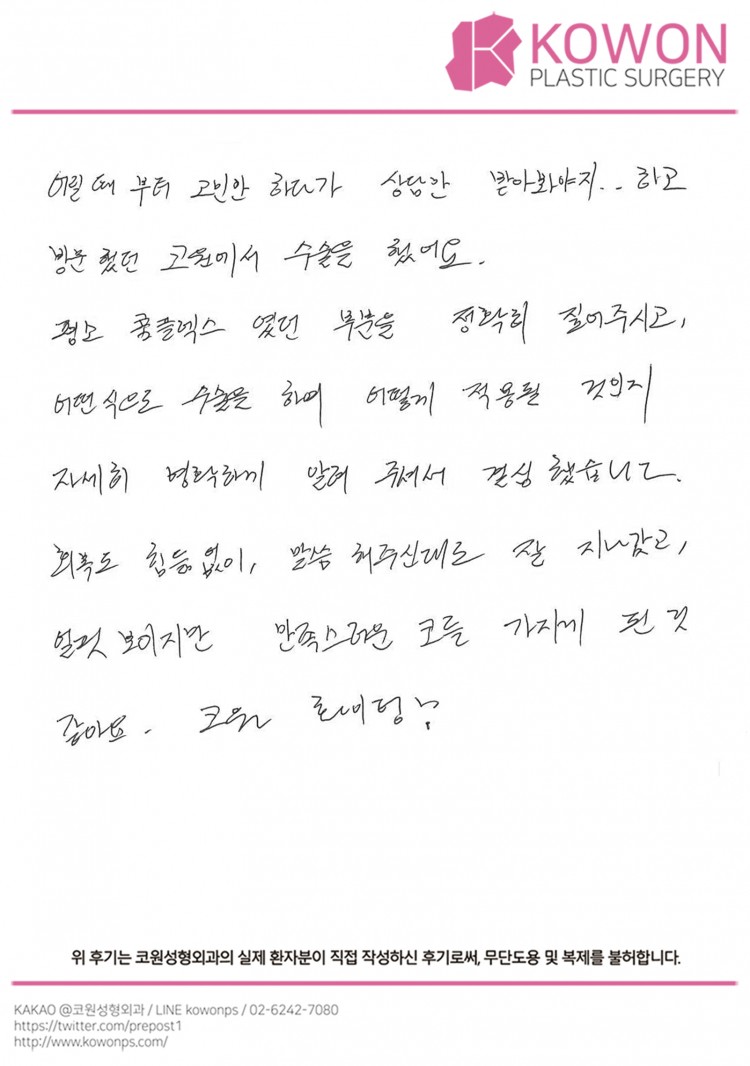 KOWON
PLASTIC SURGERY
어릴 때 부터 고민만 하다가 상담만 받아봐야지.. 하고
방문 했던 코원에서 수술을 했어요.
평소 콤플렉스 였던 부분을 정확히 짚어주시고,
어떤 식으로 수술을 하며 어떻게 적용될 것인지
자세히 명확하게 알려 주셔서 결심 했습니다.
회복도 힘듬없이, 말씀 해주신대로 잘 지나갔고,
얼핏 보이지만 만족스러운 코를 가지게 된 것
같아요. 코원
위 후기는 코원성형외과의 실제 환자분이 직접 작성하신 후기로써, 무단도용 및 복제를 불허합니다.
KAKAO @코원성형외과 / LINE kowonps / 02-6242-7080
https://twitter.com/prepost1
http://www.kowonps.com/